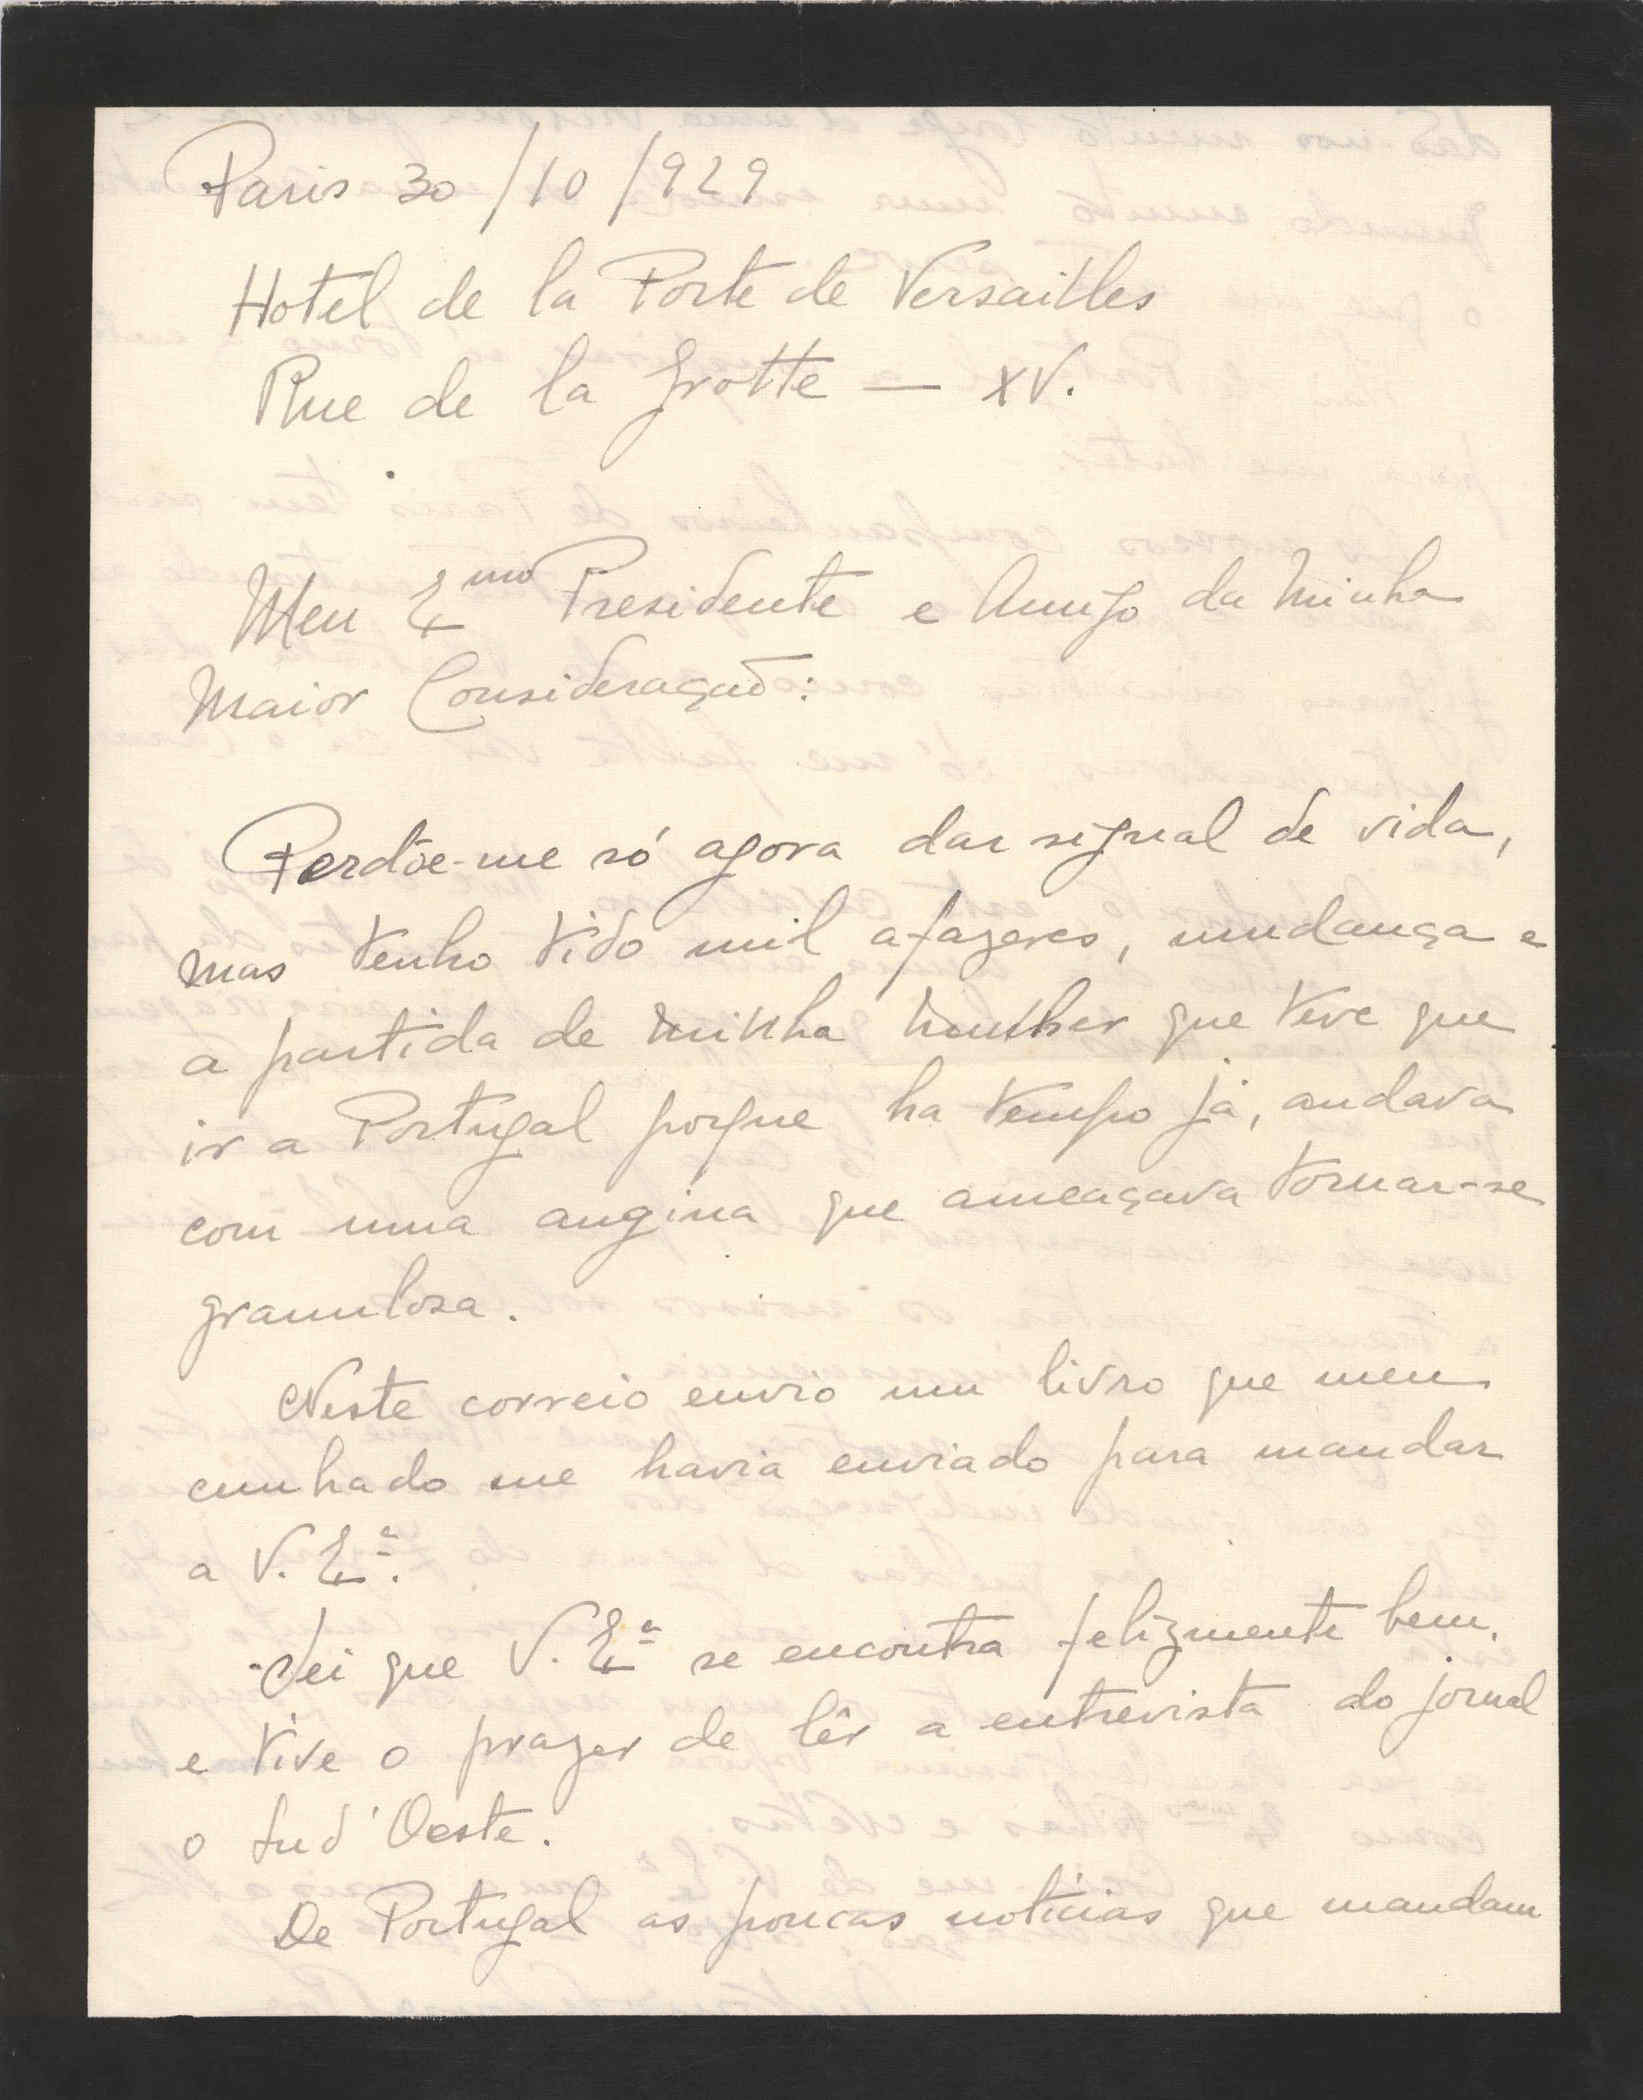 Paris 30/10/929
Hotel de la Porte de Versailles
Rue de la Grotte — XV.
Meu Exmo Presidente e Amigo da Minha
Maior Consideração:
Perdõe-me só agora dar signal de vida,
mas tenho tido mil afazeres, mudança e
a partida de minha mulher que teve que
ir a Portugal porque ha tempo já, andava
com uma angina que ameaçava tornar-se
granulosa.
Neste correio envio um livro que meu
cunhado me havia enviado para mandar
a V. Exª.
Sei que V. Exª se encontra felizmente bem.
e tive o prazer de lêr a entrevista do jornal
o Sud'Oeste.
De Portugal as poucas noticias que mandam